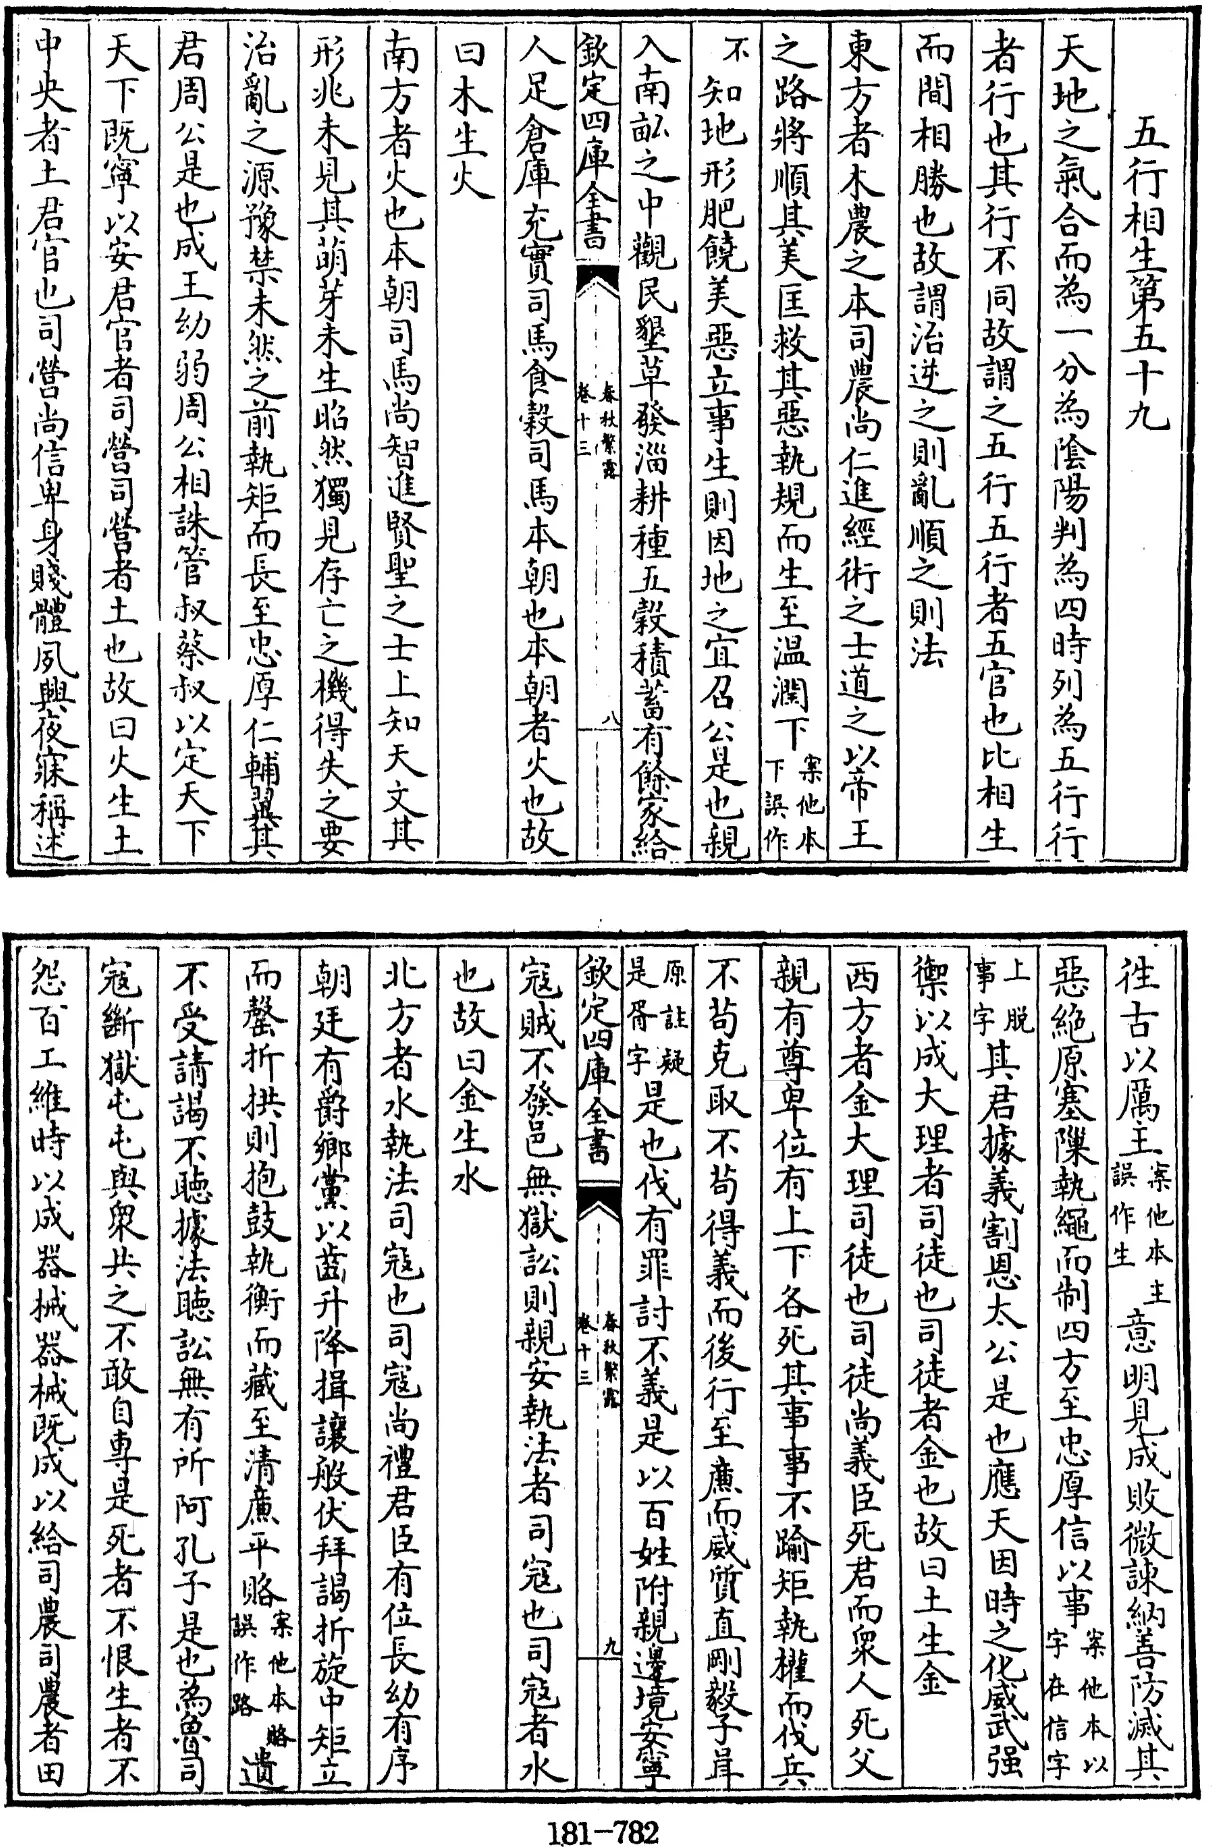 五行相生第五十九
天地之氣合而為一分為陰陽判為四時列為五行行
者行也其行不同故謂之五行五行者五官也比相生
而間相勝也故謂治逆之則亂順之則法
東方者木農之本司農尚仁進經術之士道之以帝王
之路將順其美匡救其惡執規而生至温潤下案他本下誤作
不知地形肥饒美惡立事生則因地之宜召公是也親
入南畝之中觀民墾草發淄耕種五穀積蓄有餘家給
欽定四庫全書 春秋繁露 卷十三 八
人足倉庫充實司馬食穀司馬本朝也本朝者火也故
曰木生火
南方者火也本朝司馬尚智進賢聖之士上知天文其
形兆未見其萌芽未生昭然獨見存亡之機得失之要
治亂之源豫禁未然之前執矩而長至忠厚仁輔翼其
君周公是也成王幼弱周公相誅管叔蔡叔以定天下
天下既寧以安君官者司營司營者土也故曰火生土
中央者土君官也司營尚信卑身賤體夙興夜寐稱述
徃古以厲主案他本主誤作生意明見成敗微諫納善防滅其
惡絶原塞隟執繩而制四方至忠厚信以事案他本以字在信字
上脱事字其君據義割恩太公是也應天因時之化威武强
禦以成大理者司徒也司徒者金也故曰土生金
西方者金大理司徒也司徒尚義臣死君而衆人死父
親有尊卑位有上下各死其事事不踰矩執權而伐兵
不苟克取不苟得義而後行至亷而威質直剛毅子胥
原註疑是胥字是也伐有罪討不義是以百姓附親邊境安寧
欽定四庫全書 春秋繁露 卷十三 九
寇賊不發邑無獄訟則親安執法者司寇也司寇者水
也故曰金生水
北方者水執法司寇也司寇尚禮君臣有位長幼有序
朝廷有爵鄉黨以齒升降揖讓般伏拜謁折旋中矩立
而罄折拱則抱鼓執衡而藏至清亷平賂案他本賂誤作路遺
不受請謁不聽據法聽訟無有所阿孔子是也為魯司
寇斷獄屯屯與衆共之不敢自專是死者不恨生者不
怨百工維時以成器械器械既成以給司農司農者田
181-782